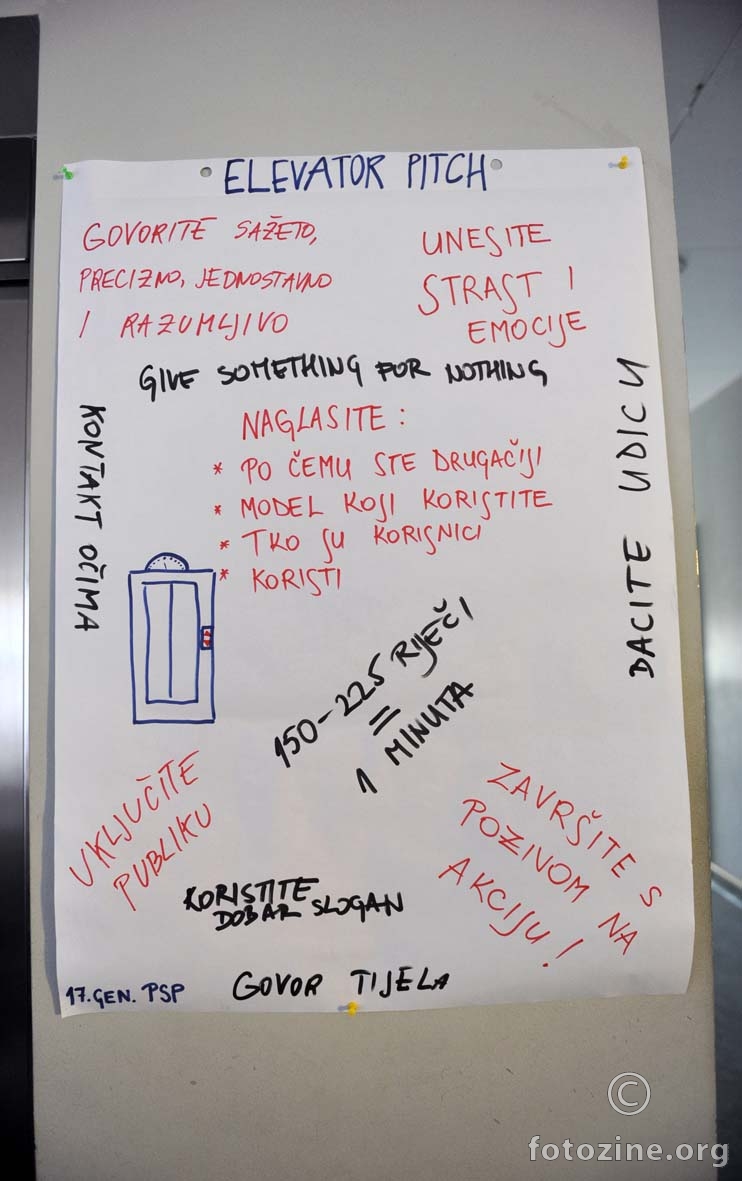 ELEVATOR PITCH
GOVORITE SAŽETO,
PRECIZNO, JEDNOSTAVNO
I RAZUMLJIVO
UNESITE
STRAST I
EMOCIJE
GIVE SOMETHING FOR NOTHING
KONTAKT OČIMA
NAGLASITE:
* PO ČEMU STE DRUGAČIJI
* MODEL KOJI KORISTITE
* TKO SU KORISNICI
* KORISTI
DACITE UDICU
150-225 RIJEČI
=
1 MINUTA
UKLJUČITE
PUBLIKU
ZAVRŠITE S
POZIVOM NA
AKCIJU!
KORISTITE
DOBAR SLOGAN
17.GEN. PSP
GOVOR TIJELA
©
fotozine.org